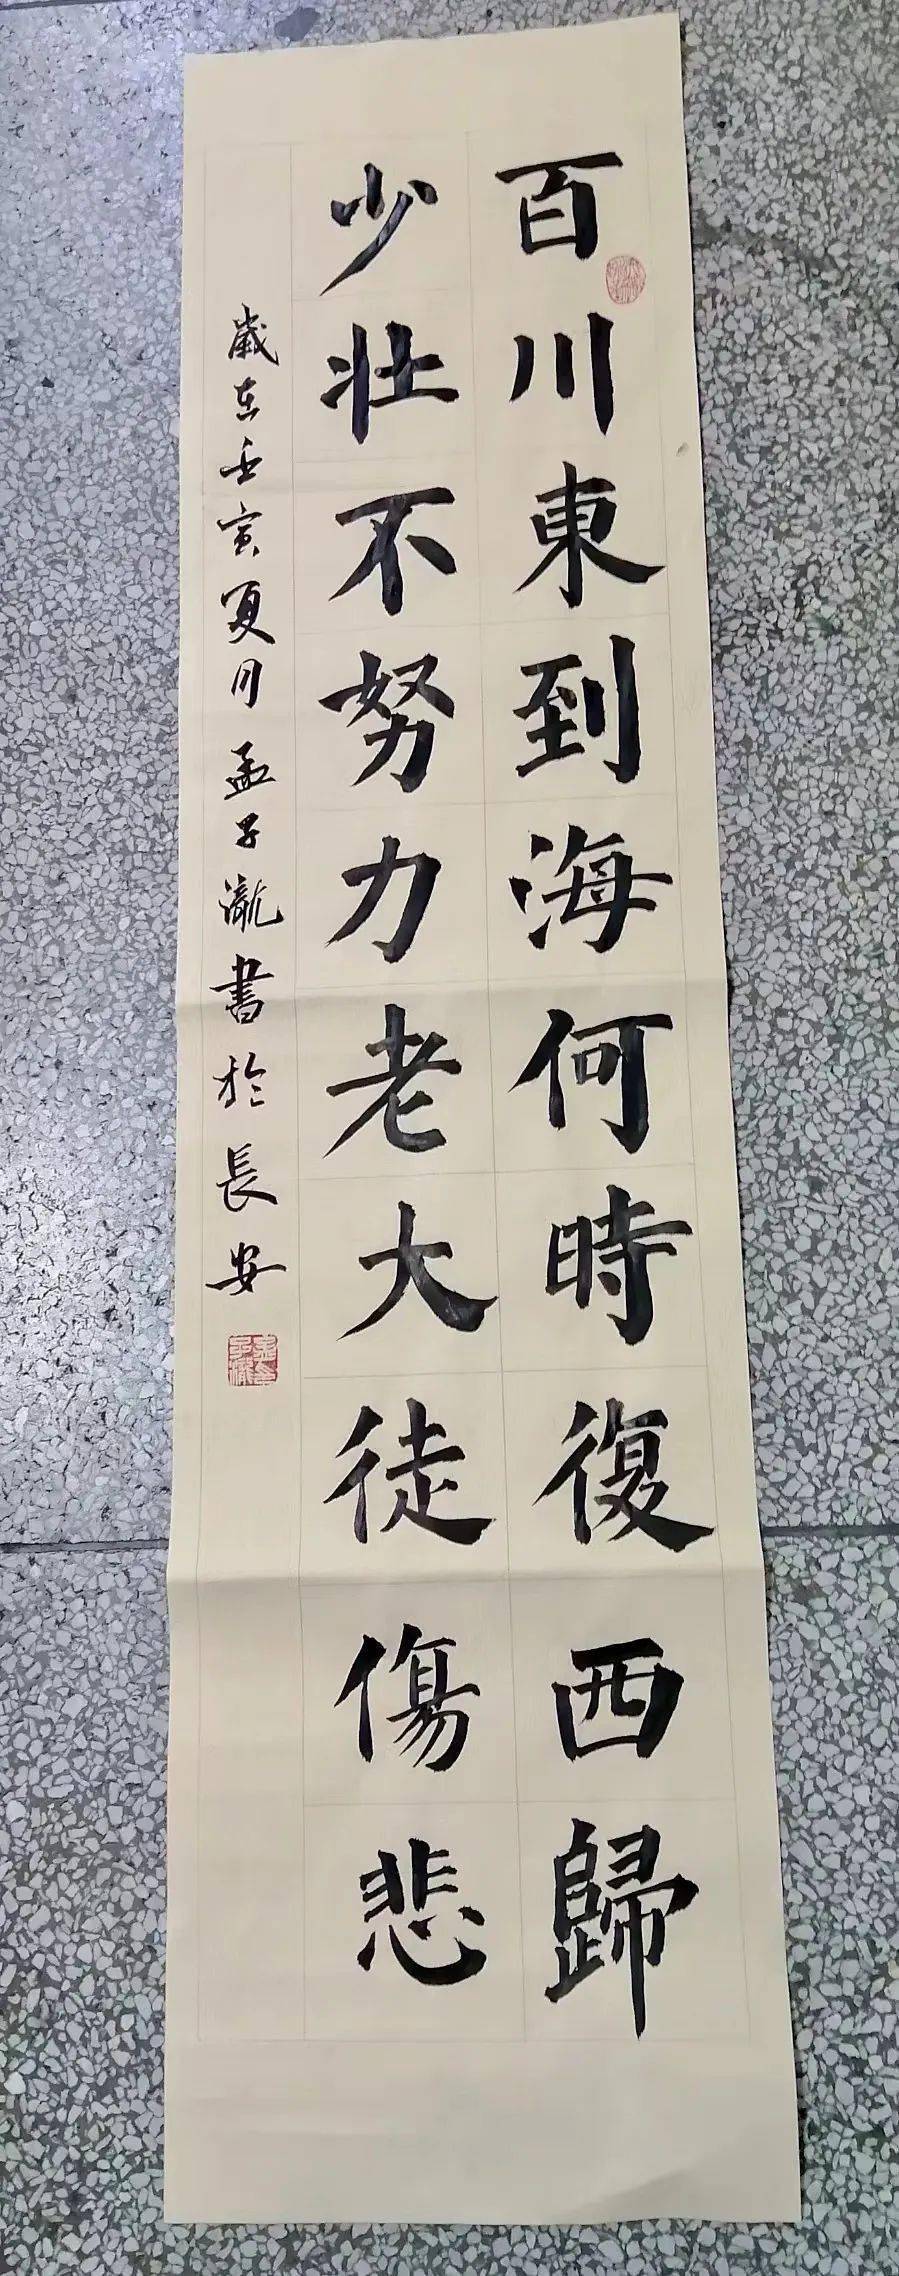 百川東到海何時復西歸
少壯不努力老大徒傷悲
歲在壬寅夏月孟子瀧書於長安